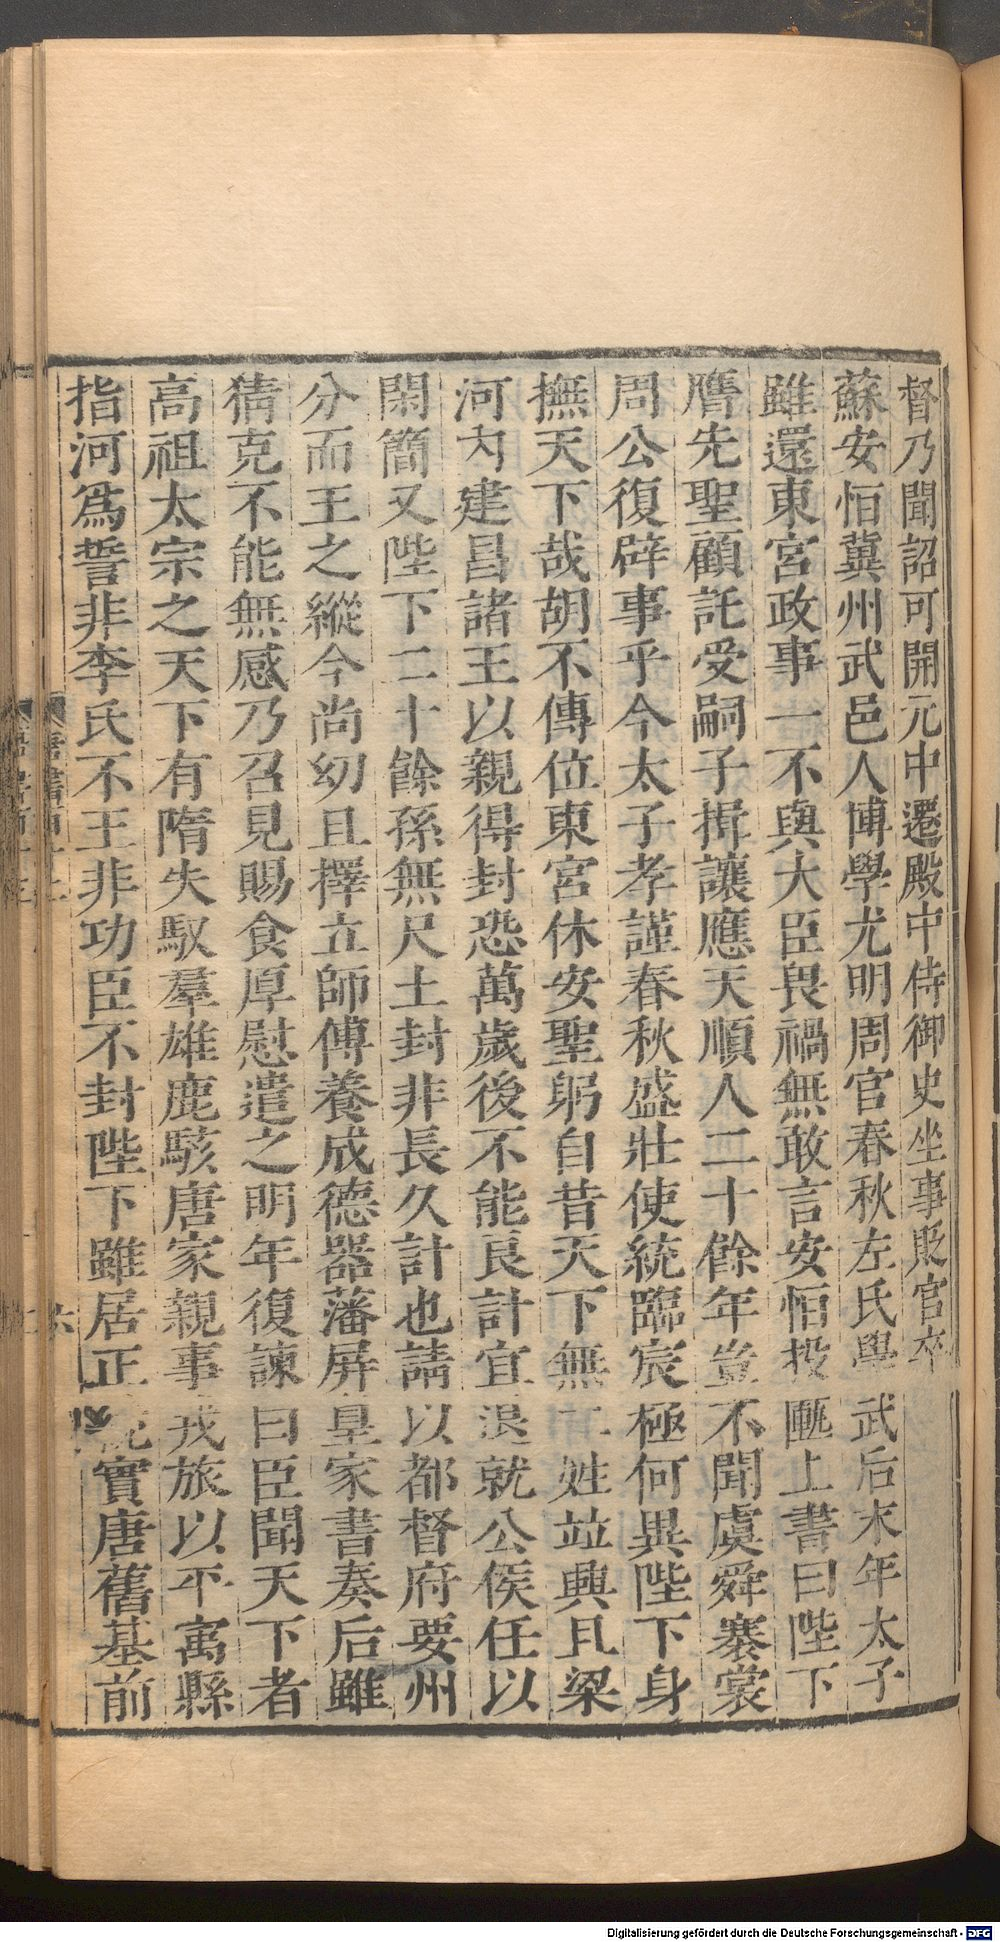 督乃聞詔可開元中遷殿中侍御史坐事貶官卒
蘇安恒冀州武邑人博學尤明周官春秋左氏學武后末年太子
雖還東宮政事一不與大臣畏禍無敢言安恒投匭上書曰陛下
膺先聖顧託受嗣子揖讓應天順人二十餘年豈不聞虞舜褰裳
周公復辟事乎今太子孝謹春秋盛壯使統臨宸極何異陛下身
撫天下哉胡不傳位東宮休安聖躬自昔天下無二姓竝興且梁
河內建昌諸王以親得封恐萬歲後不能良計宜退就公侯任以
閑簡又陛下二十餘孫無尺土封非長久計也請以都督府要州
分而王之縱今尚幼且擇立師傅養成德器藩屏皇家書奏后雖
猜克不能無感乃召見賜食厚慰遣之明年復諫曰臣聞天下者
高祖太宗之天下有隋失馭羣雄鹿駭唐家親事戎旅以平寓縣
指河為誓非李氏不王非功臣不封陛下雖居正統實唐舊基前
六
Digitalisierung gefördert durch die Deutsche Forschungsgemeinschaft - DFG